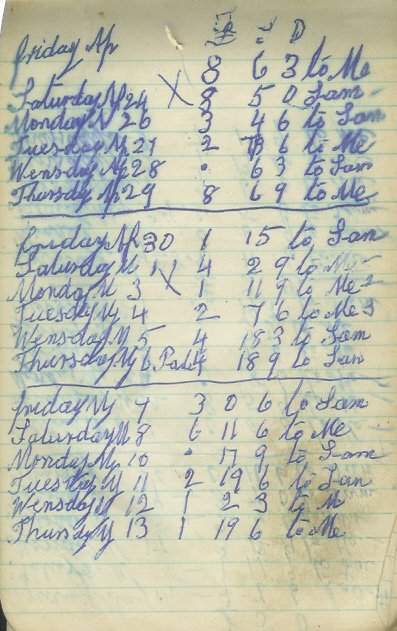 £ S D
Friday Ap 8 6 3 to Me
Saturday Ap 24 X 8 5 0 Sam
Monday A 26 3 4 6 to Sam
Tuesday Ap 27 2 6 to Me
Wensday Ap 28 . 6 3 to Sam
Thorsday Ap 29 8 6 9 to Me
Friday Ap 30 1 15 to Sam
Saturday M 1 X 4 2 9 to Me
Monday M 3 1 11 9 to Me
Tuesday My 4 2 7 6 to Me
Wensday M 5 4 18 3 to Sam
Thorsday My 6 Paid 4 18 9 to Sam
Friday My 7 3 0 6 to Sam
Saturday M 8 6 11 6 to Me
Monday My 10 . 17 9 to Sam
Tuesday My 11 2 19 6 to Sam
Wensday M 12 1 2 3 to M
Thursday 13 1 19 6 to Me